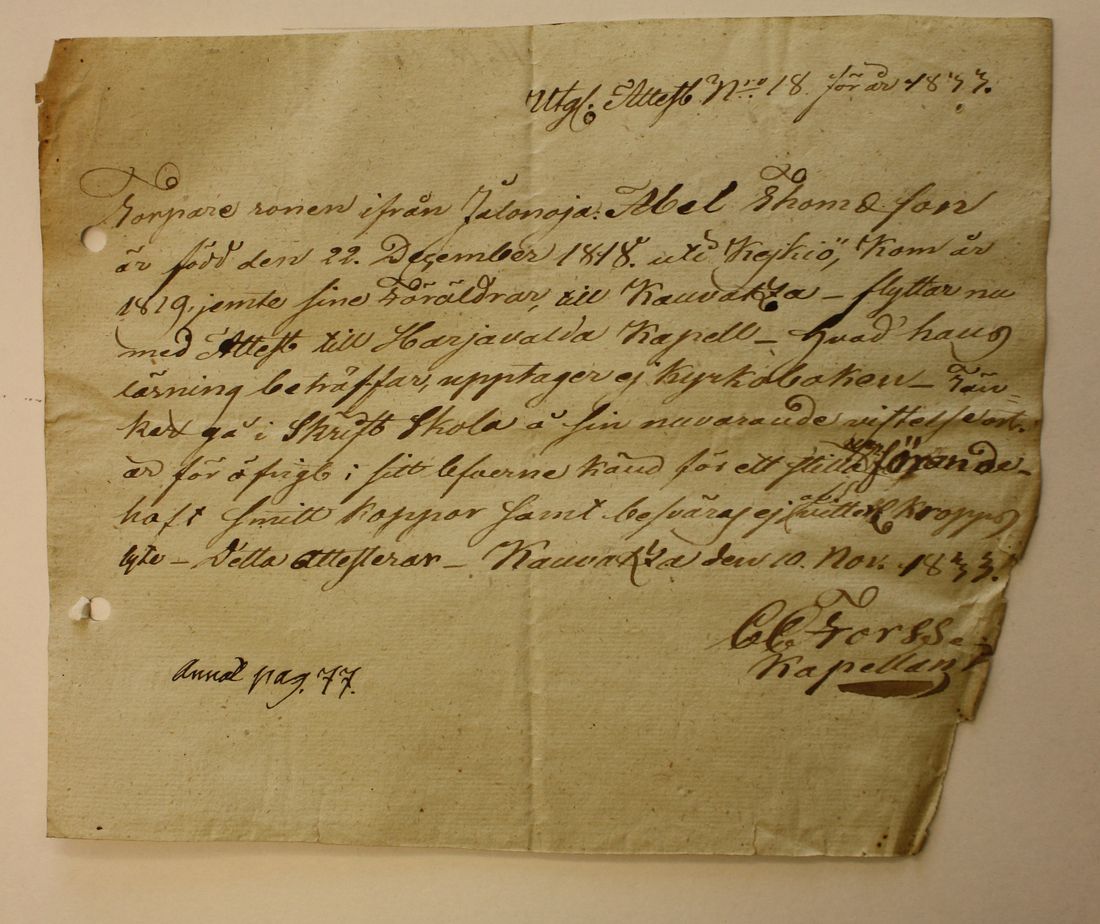 Utgl. Attest Nro 18 för år 1833.
Torpare sonen ifrån Jalonoja: Abel Thomæ son
är född den 22. December 1818. uti Keikiö, Kom år
1819, jemte sine Föräldrar, till Kauvatza – flyttar nu
med Attest till Harjavalda Kapell – Hvad hans
läsning beträffar, upptager ej Kyrkoboken – Tän=
ket gå i Skrift Skola å sin nuvarande vistelse ort.
är för öfrigt i sitt lefverne känd för ett stilla förande –
haft Smitt koppor samt besväras ej af kropps
lyte – Detta attesterar – Kauvatza den 10. Nov. 1833.
CC Forsse
Kapellan
Annot pag. 77.